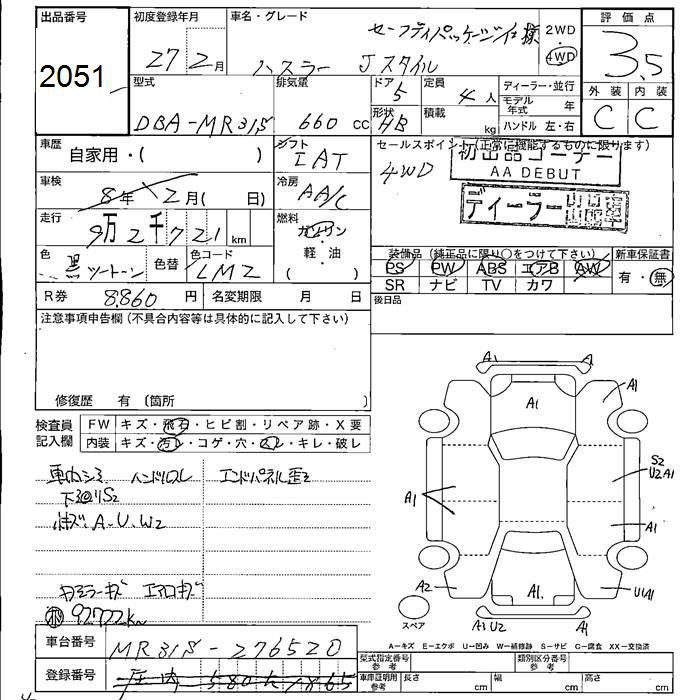 出品番号
2051
初度登録年月
27年2月
車名・グレード
セーフティパッケージ仕様
ハスラー Jスタイル
2WD
・
4WD
評価点
3.5
外装 内装
C C
型式
DBA-MR31S
排気量
660 cc
ドア
5
形状
HB
定員
4人
積載
kg
ディーラー・並行
モデル年式 年
ハンドル 左・右
車歴
自家用・( )
シフト
IAT
冷房
AA/C
車検
8年2月( 日)
走行
9万2千721 km
燃料
ガソリン
・
軽・油
( )
色
黒ツートーン
色替
色コード
LMZ
R券 8860円 名変期限 月 日
セールスポイント(正常に機能するものに限ります)
4WD
初出品コーナー
AA DEBUT
ディーラー
装備品(純正品に限り○をつけて下さい)
PS PW ABS エアB AW
SR ナビ TV カワ
新車保証書
有・無
後日品
注意事項申告欄(不具合内容等は具体的に記入して下さい)
修復歴 有〔箇所 〕
検査員
記入欄
FW キズ・飛石・ヒビ割・リペア跡・X要
内装 キズ・汚レ・コゲ・穴・スレ・キレ・破レ
車内シミ ハンドルスレ
下廻りS2
小キズ A.U.W2
エンドパネル歪2
ドアミラーキズ エアロキズ
92722km
車台番号 MR31S-276520
登録番号
A1 A
A1 A1
S2
U2 A1
A1
A1
A2 A1 U1A1
スペア
A3 U2 A1
A-キズ E-エクボ U-凹み W-補修跡 S-サビ C-腐食 XX-交換済
型式指定番号
参考
類別区分番号
参考
車庫証明用
参考
長さ cm 幅 cm 高さ cm